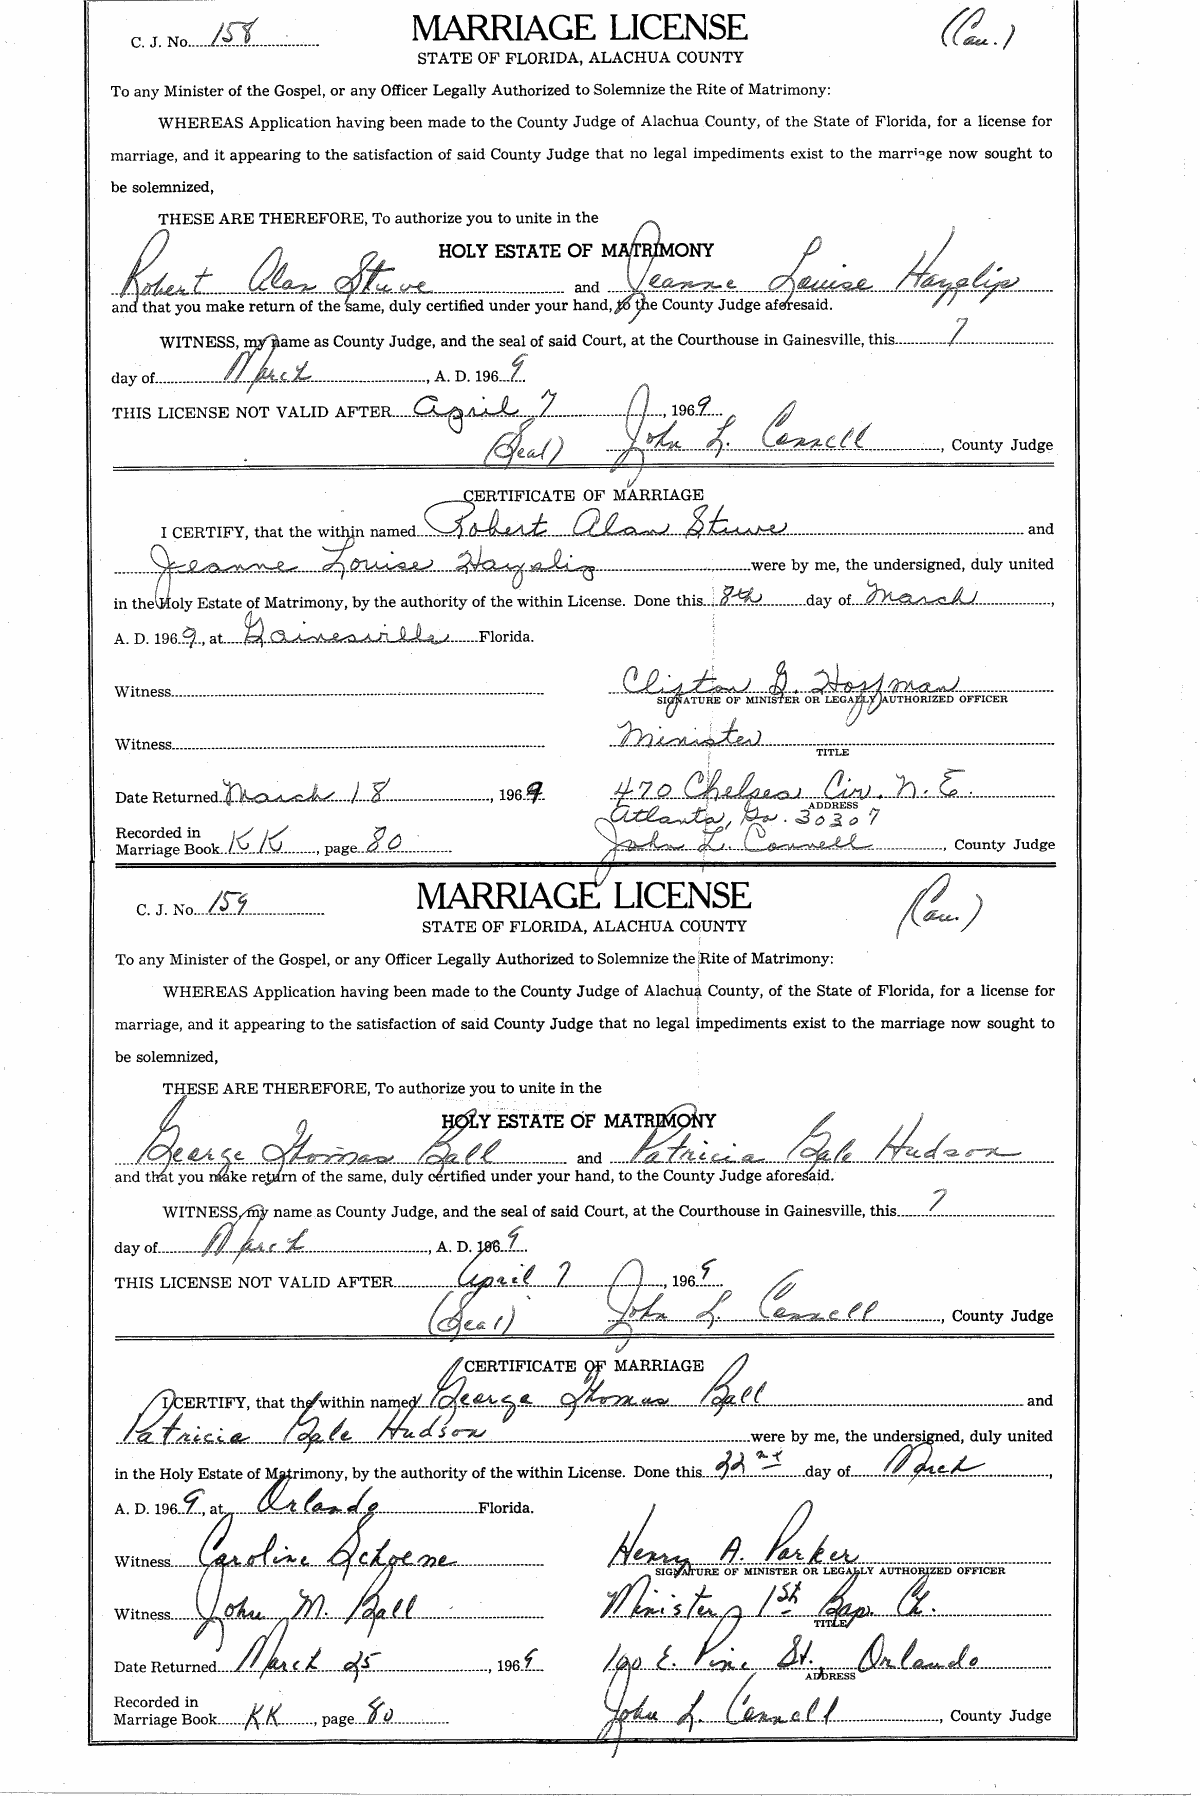 C. J. No. 158
MARRIAGE LICENSE
(Cau.)
STATE OF FLORIDA, ALACHUA COUNTY
To any Minister of the Gospel, or any Officer Legally Authorized to Solemnize the Rite of Matrimony:
WHEREAS Application having been made to the County Judge of Alachua County, of the State of Florida, for a license for
marriage, and it appearing to the satisfaction of said County Judge that no legal impediments exist to the marriage now sought to
be solemnized,
THESE ARE THEREFORE, To authorize you to unite in the
HOLY ESTATE OF MATRIMONY
Robert Alan Stuve and Jeanne Louise Hayslip
and that you make return of the same, duly certified under your hand, to the County Judge aforesaid.
WITNESS, my name as County Judge, and the seal of said Court, at the Courthouse in Gainesville, this 7
day of March, A. D. 196 9
THIS LICENSE NOT VALID AFTER April 7, 196 9
(Seal) John L. Connell, County Judge
CERTIFICATE OF MARRIAGE
I CERTIFY, that the within named Robert Alan Stuve and
Jeanne Louise Hayslip were by me, the undersigned, duly united
in the Holy Estate of Matrimony, by the authority of the within License. Done this 8th day of March,
A. D. 196 9, at Gainesville Florida.
Witness Clifton G. Hoffman
SIGNATURE OF MINISTER OR LEGALLY AUTHORIZED OFFICER
Witness Minister
TITLE
Date Returned March 18, 196 9 470 Chelsea Cir. N. E.
ADDRESS
Atlanta, Ga. 30307
Recorded in
Marriage Book KK, page 80 John L. Connell, County Judge
C. J. No. 159
MARRIAGE LICENSE
(Cau.)
STATE OF FLORIDA, ALACHUA COUNTY
To any Minister of the Gospel, or any Officer Legally Authorized to Solemnize the Rite of Matrimony:
WHEREAS Application having been made to the County Judge of Alachua County, of the State of Florida, for a license for
marriage, and it appearing to the satisfaction of said County Judge that no legal impediments exist to the marriage now sought to
be solemnized,
THESE ARE THEREFORE, To authorize you to unite in the
HOLY ESTATE OF MATRIMONY
George Thomas Ball and Patricia Gale Hudson
and that you make return of the same, duly certified under your hand, to the County Judge aforesaid.
WITNESS, my name as County Judge, and the seal of said Court, at the Courthouse in Gainesville, this 7
day of March, A. D. 196 9
THIS LICENSE NOT VALID AFTER April 7, 196 9
(Seal) John L. Connell, County Judge
CERTIFICATE OF MARRIAGE
I CERTIFY, that the within named George Thomas Ball and
Patricia Gale Hudson were by me, the undersigned, duly united
in the Holy Estate of Matrimony, by the authority of the within License. Done this 22nd day of March,
A. D. 196 9, at Orlando Florida.
Witness Caroline Schoene Henry A. Parker
SIGNATURE OF MINISTER OR LEGALLY AUTHORIZED OFFICER
Witness John M. Ball Minister, 1st Bap. Ch.
TITLE
Date Returned March 25, 196 9 190 E. Pine St. Orlando
ADDRESS
Recorded in
Marriage Book KK, page 80 John L. Connell, County Judge